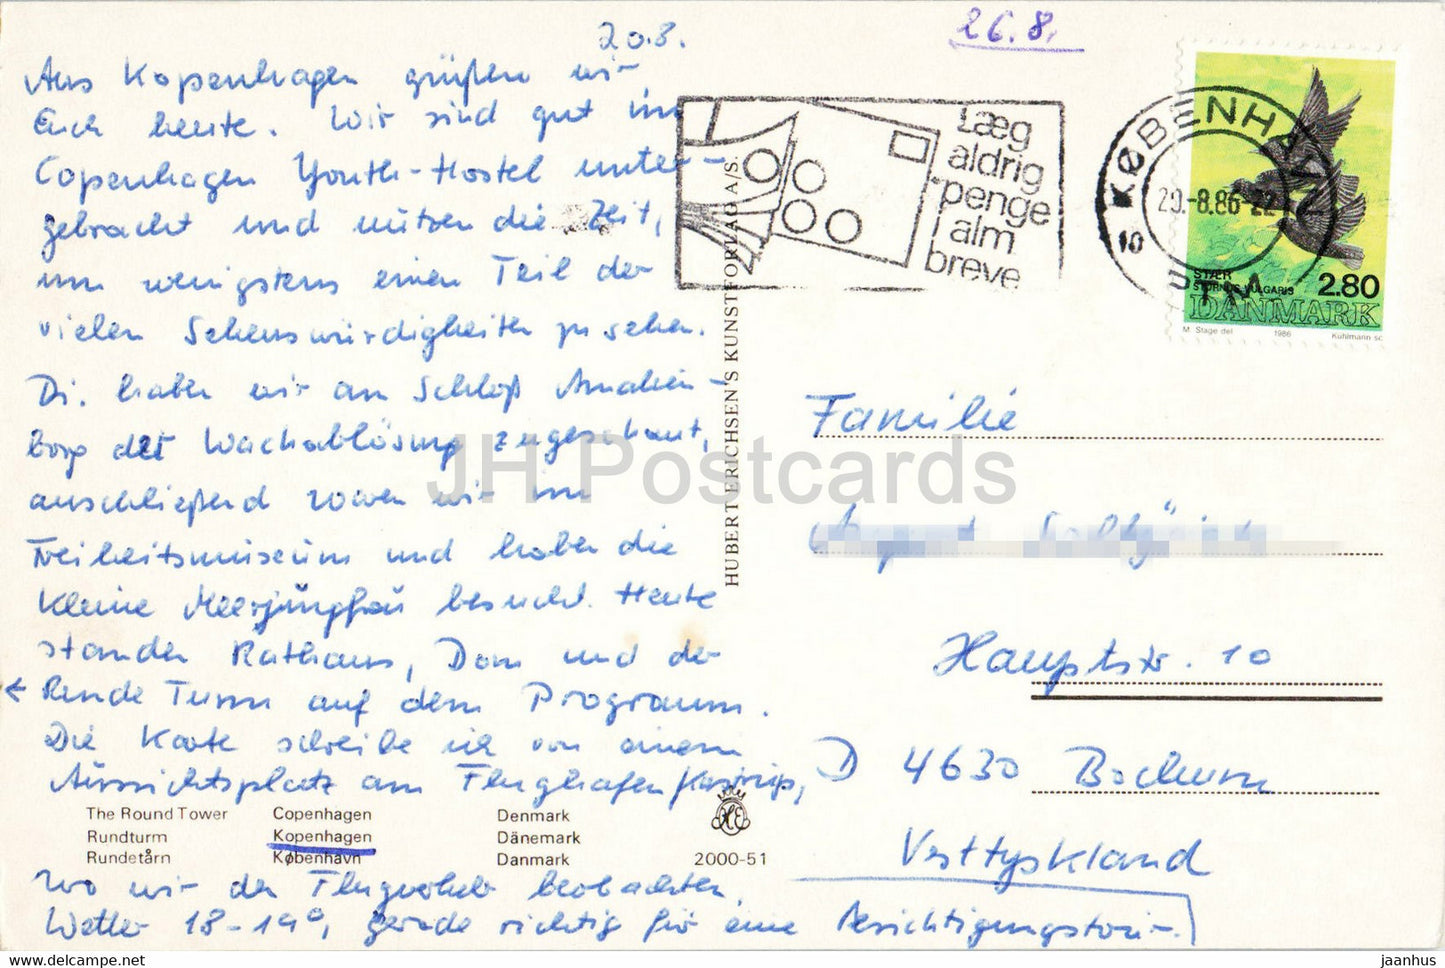 20.8.
26.8.
Aus Kopenhagen grüßen wir
Euch heute. Wir sind gut im
Copenhagen Youth-Hostel unter-
gebracht und nützen die Zeit,
um wenigstens einen Teil der
vielen Sehenswürdigkeiten zu sehen.
Di. haben wir am Schloß Amalien-
borg der Wachablösung zugeschaut,
anschließend waren wir im
Freiheitsmuseum und haben die
Kleine Meerjungfrau besucht. Heute
standen Rathaus, Dom und der
← Runde Turm auf dem Programm.
Die Karte schreibe ich von einem
Aussichtsplatz am Flughafen Kastrup,
The Round Tower Copenhagen Denmark
Rundturm Kopenhagen Dänemark
Rundetårn København Danmark
2000-51
wo wir den Flugverkehr beobachten,
Wetter 18-19°, gerade richtig für eine Besichtigungstour.
HUBERT ERICHSEN'S KUNSTFORLAG A/S.
Læg
aldrig
penge
i alm
breve
KØBENHAVN
20.-8.86-22
10
OMK
STÆR
STURNUS VULGARIS
2.80
DANMARK
M. Stage del 1986 Kuhlmann sc
Familie
Hauptstr. 10
D 4630 Bochum
Vesttyskland
JH Postcards
https://www.hippostcard.com/store/jaanhus
jaanhus